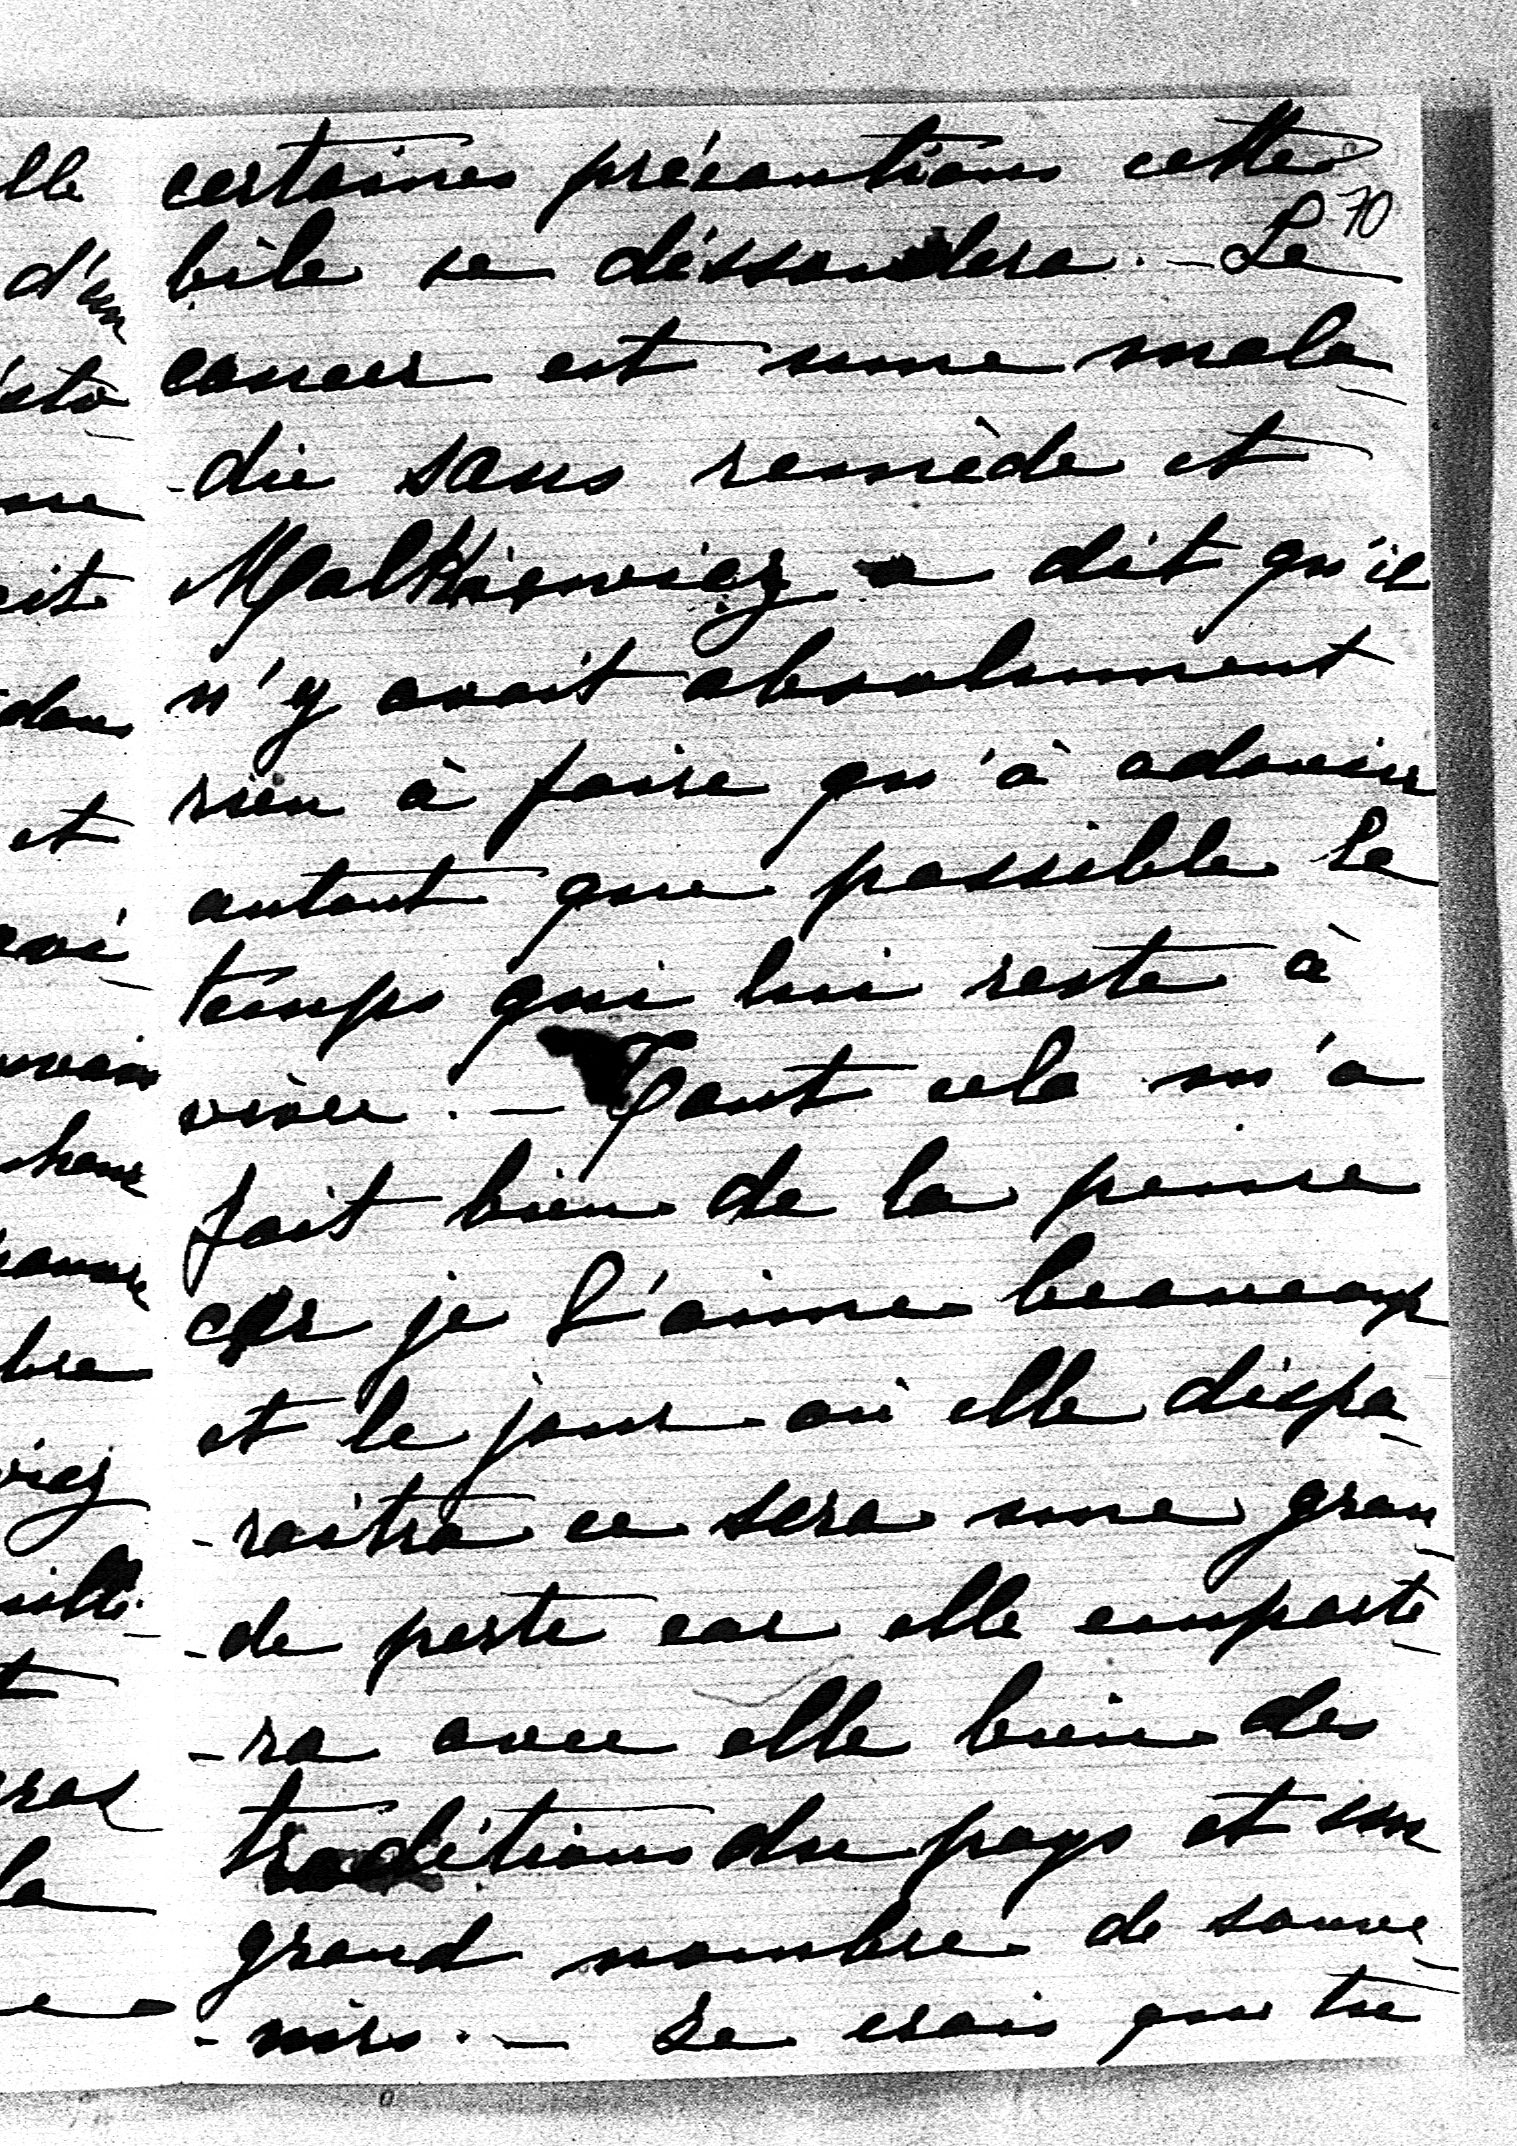 certaines précautions cette
70
bile se déssoudera. — Le
cancer est une mala
-die sans remède et
Malkiewicz a dit qu'il
n'y avait absolument
rien à faire qu'à adoucir
autant que possible le
temps qui lui reste à
vivre. — Tout cela m'a
fait bien de la peine
car je l'aime beaucoup
et le jour où elle dispa
-raîtra ce sera une gran
-de perte car elle emporte
-ra avec elle bien des
traditions du pays et un
grand nombre de souve
-nirs. — Je crois que tu
lle
d'un
me
et
bre
la